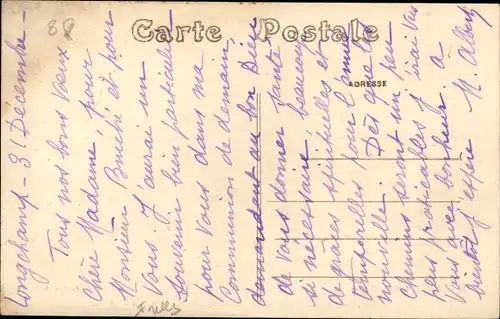 38
Carte Postale
ADRESSE
Longchamp - 31 Décembre -
Tous nos bons vœux
Chère Madame, pour
Monsieur Bruché et pour
vous. J'aurai un
souvenir bien particulier
pour vous dans ma
Communion de demain,
demandant au bon Dieu
de vous donner santé
si nécessaire, beaucoup
de grâces spirituelles et
temporelles pour l'année
nouvelle. Dès que les
chemins seront un
peu praticables j'irai vous
voir avec bonheur. à
bientôt j'espère M.